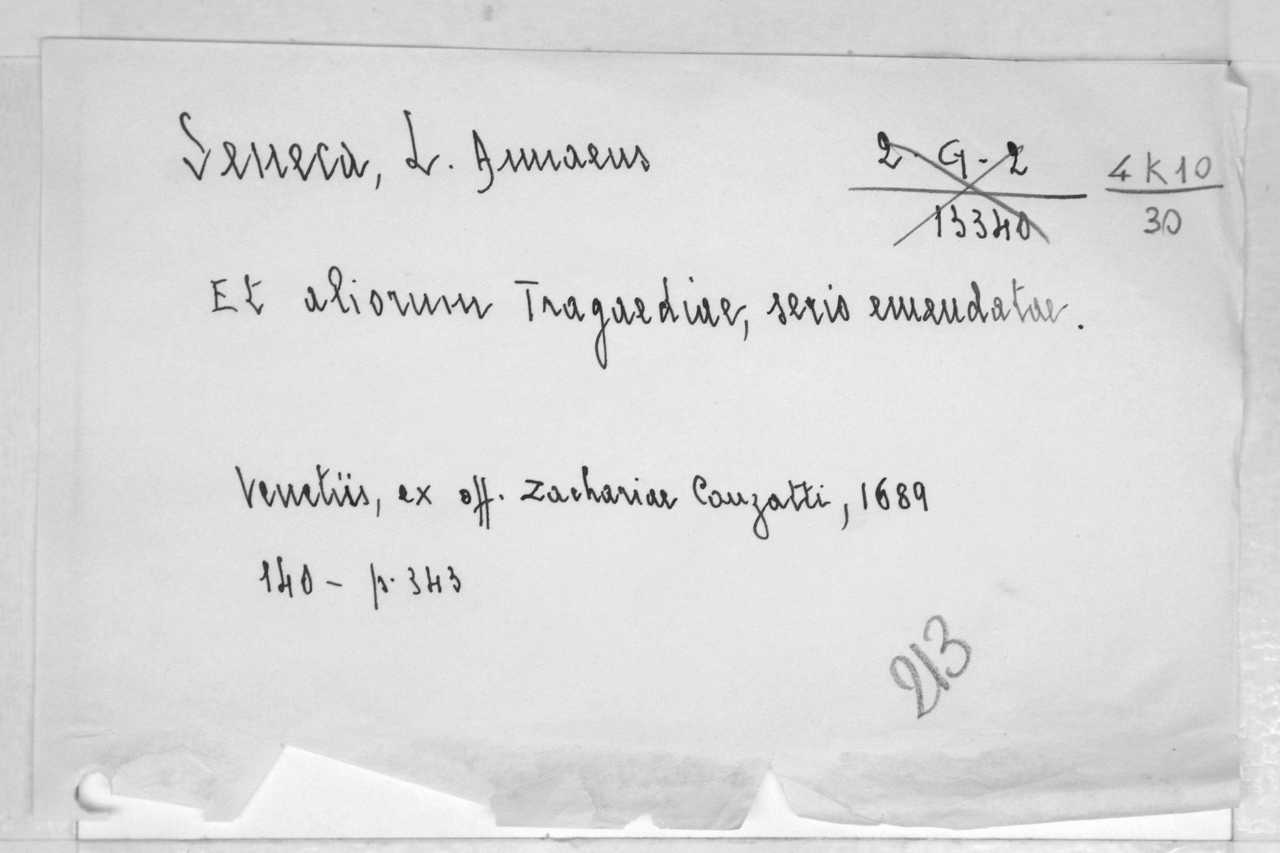 Seneca, L. Annaeus
2. G - 2
13340
4 K 10
30
Et aliorum Tragaediae, serio emendatae.
Venetiis, ex off. Zachariae Conzatti, 1689
140 - p. 343
213